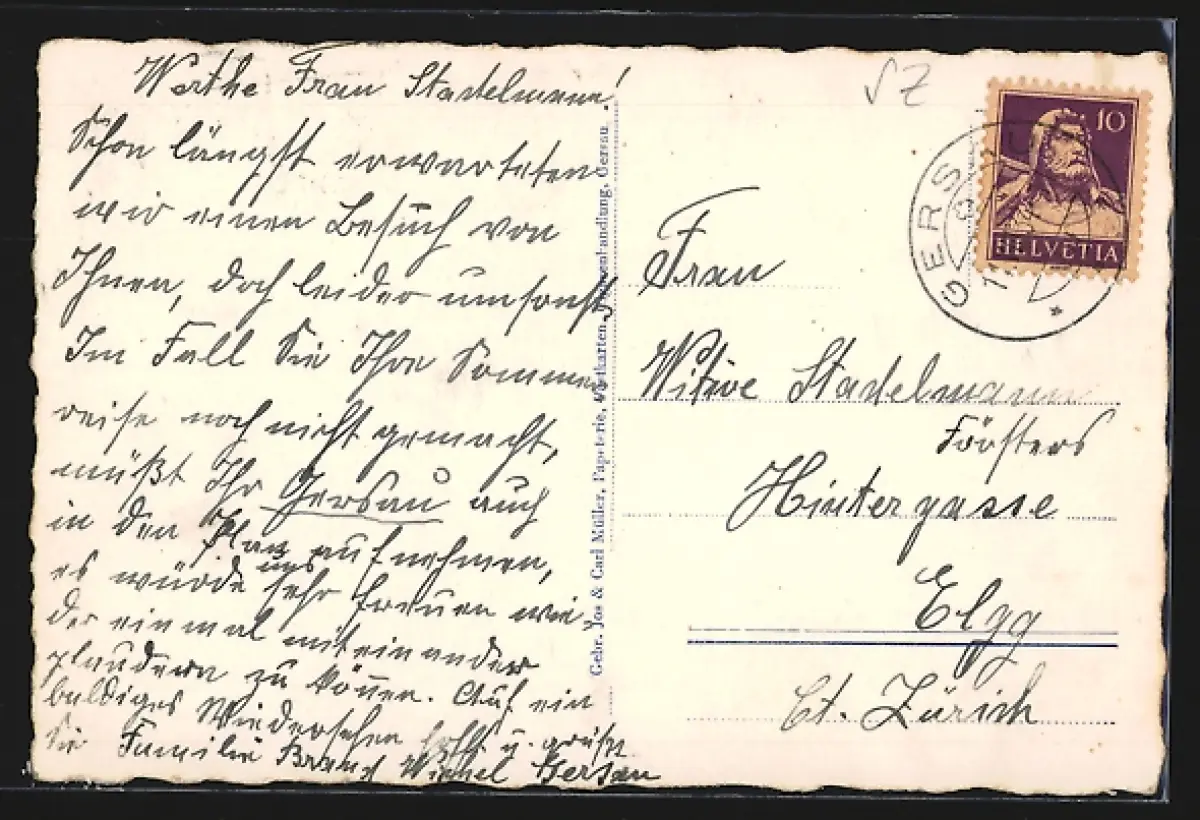 Werthe Frau Stadelmann!
Schon längst erwarteten
wir einen Besuch von
Ihnen, doch leider umsonst
Im Fall Sie Ihre Sommer
reise noch nicht gemacht,
müßt Ihr Gersau auch
in den Plan aufnehmen,
es würde uns sehr freuen wie-
der einmal miteinander
plaudern zu können. Auf ein
baldiges Wiedersehen hofft u. grüßt
Sie Familie Gersau
Gebr. Jos & Carl Müller, Papeterie, Postkarten, Gersau.
SZ
10
HELVETIA
GERS
Frau
Witwe Stadelmann
Försters
Hintergasse
Elgg
Ct. Zürich